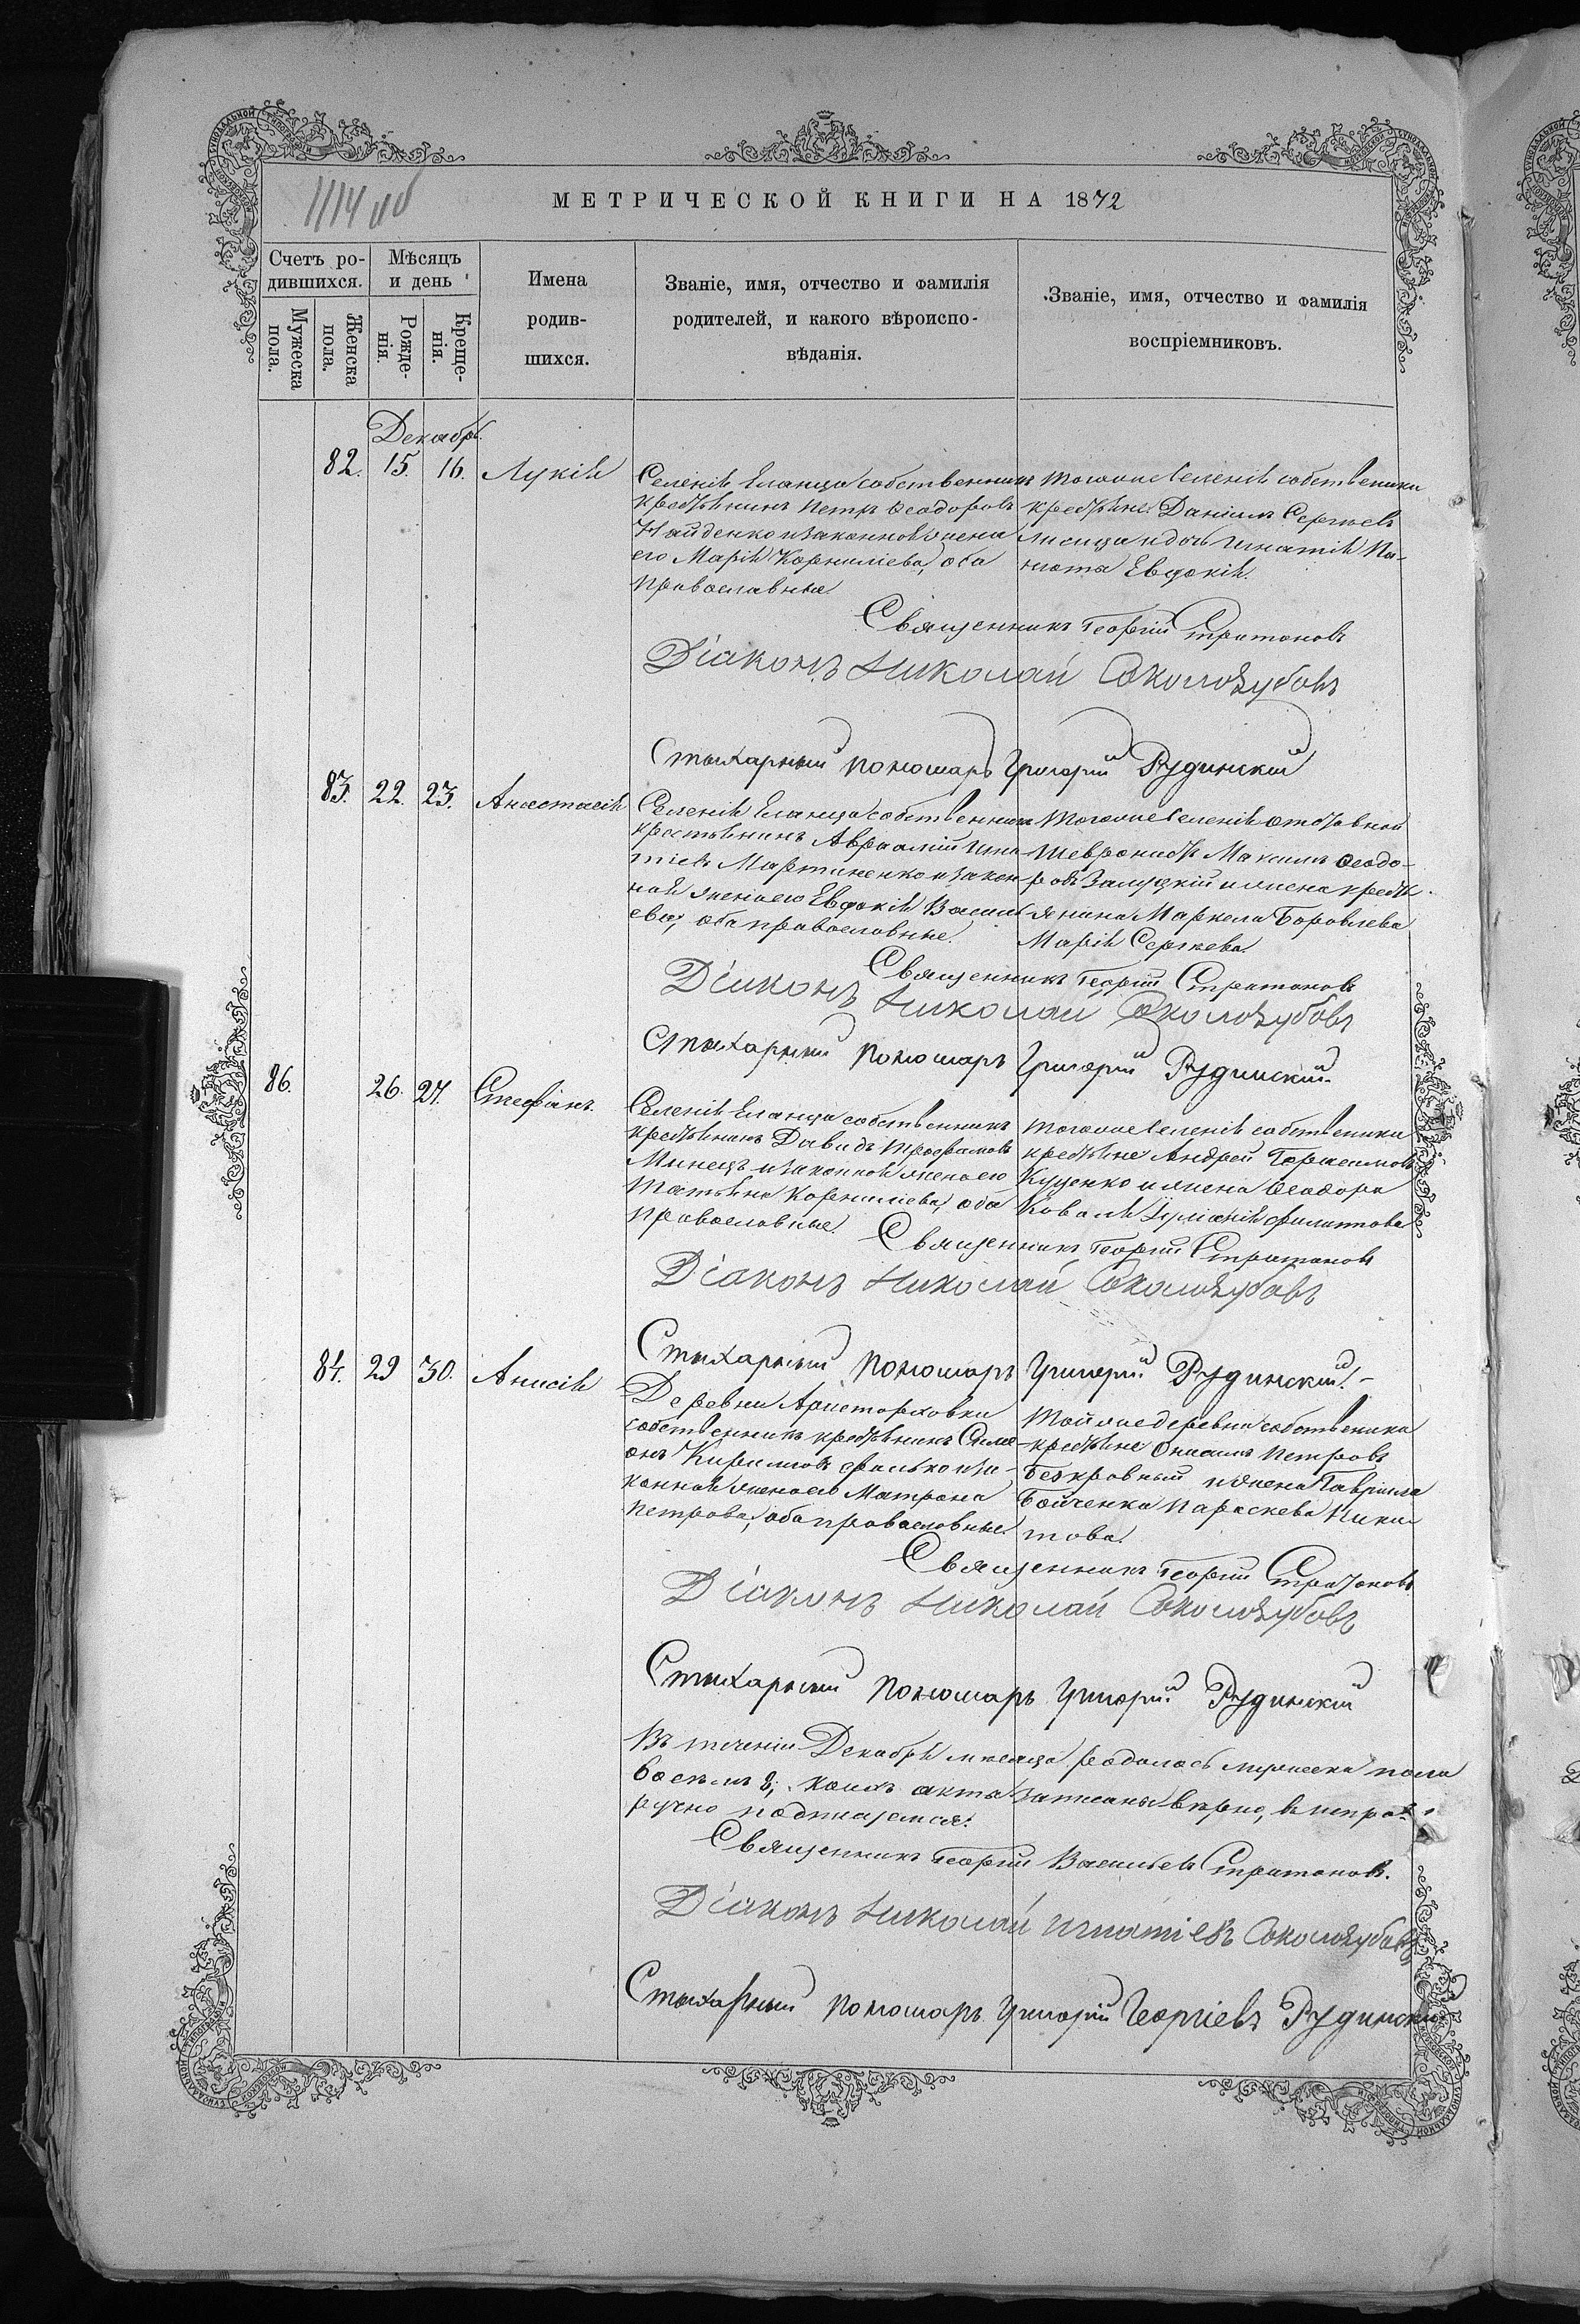 1114 об
МЕТРИЧЕСКОЙ КНИГИ НА 1872
Счетъ ро-
дившихся.
Мѣсяцъ
и день
Мужеска
пола.
Женска
пола.
Рожде-
нія.
Креще-
нія.
Имена
родив-
шихся.
Званіе, имя, отчество и фамилія
родителей, и какого вѣроиспо-
вѣданія.
Званіе, имя, отчество и фамилія
воспріемниковъ.
Декабрь.
82. 15. 16. Лукія
Селенія Еланца собственникъ
крестьянинъ Петръ Ѳеодоровъ
Найденко и законная жена
его Марія Корниліева, оба
православные
Тогоже селенія собственники
крестьяне: Даніилъ Сергѣевъ
Лисица и дочь Игнатія
Евдокія.
Священникъ Георгій Стратоновъ
Діаконъ Николай Соколозубовъ
Стихарный пономарь Григорій Рудинскій
83. 22. 23. Анастасія
Селенія Еланца собственникъ
крестьянинъ Авраамій Игна-
тіевъ Мартиненко и закон-
ная жена его Евдокія Василь-
ева, оба православные.
Тогоже селенія отставной
Максимъ Ѳеодо-
ровъ Залуцкій и жена кресть-
янина Маркела Боровлева
Марія Сергѣева.
Священникъ Георгій Стратоновъ
Діаконъ Николай Соколозубовъ
Стихарный пономарь Григорій Рудинскій
86. 26. 27. Стефанъ.
Селенія Еланца собственникъ
крестьянинъ Давидъ Трофимовъ
Минецъ и законная жена его
Татьяна Корниліева, оба
православные.
Тогоже селенія собственники
крестьяне Андрей Герасимовъ
Куценко и жена Ѳеодора
Коваля Іуліанія Филиппова
Священникъ Георгій Стратоновъ
Діаконъ Николай Соколозубовъ
Стихарный пономарь Григорій Рудинскій.-
84. 29 30. Анисія
Деревни Аристарховки
собственникъ крестьянинъ Симе-
онъ Кириловъ Филько и за-
конная жена его Матрона
Петрова, оба православные.
Той же деревни собственники
крестьяне Онисимъ Петровъ
Безкровный и жена Гавріила
Бойченка Параскева Ники-
това.
Священникъ Георгій Стратоновъ
Діаконъ Николай Соколозубовъ
Стихарный пономарь Григорій Рудинскій
Въ теченіи Декабря мѣсяца родилось мужеска пола
8, коихъ акты записаны вѣрно, въ
подписуемся.
Священникъ Георгій Васильевъ Стратоновъ.
Діаконъ Николай Игнатіевъ Соколозубовъ
Стихарный пономарь Григорій Георгіевъ Рудинскій